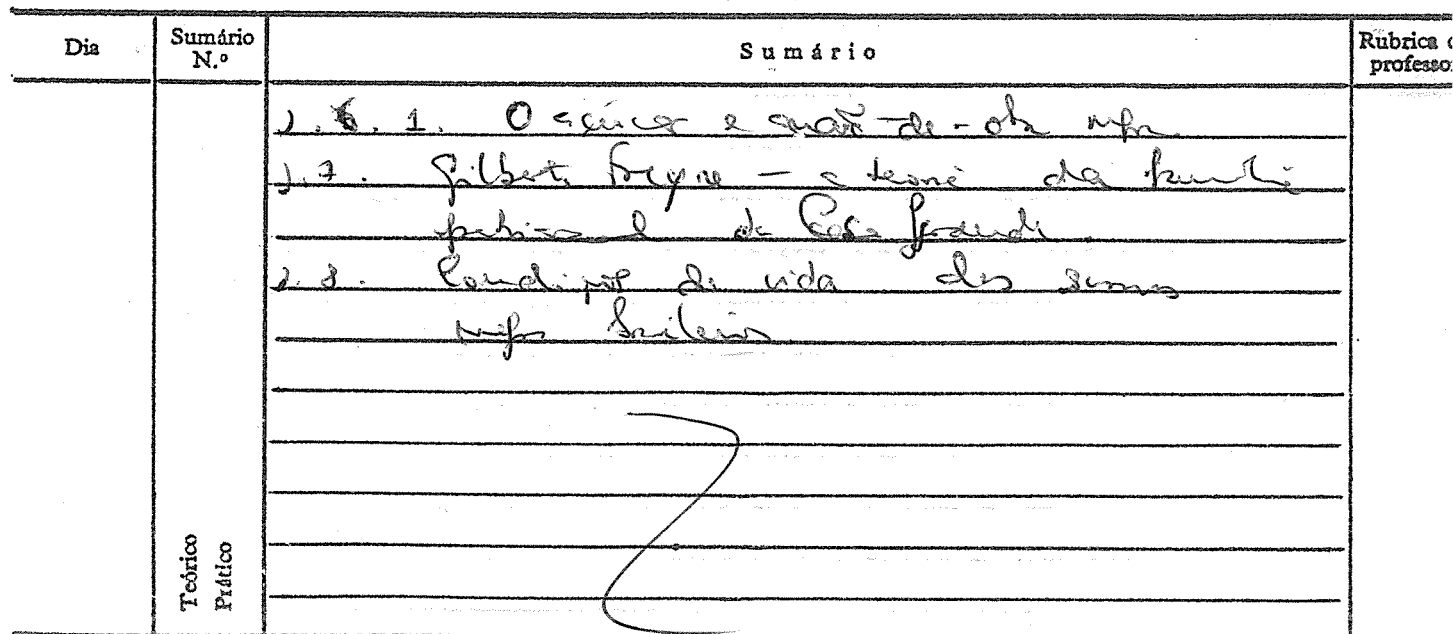 Dia
Sumário N.º
Sumário
Rubrica
professo
1. O açúcar e a mão-de-obra negra
7. Gilberto Freyre – a teoria da família
patriarcal da Casa Grande.
8. Condições de vida dos
negros brasileiros
Teórico
Prático